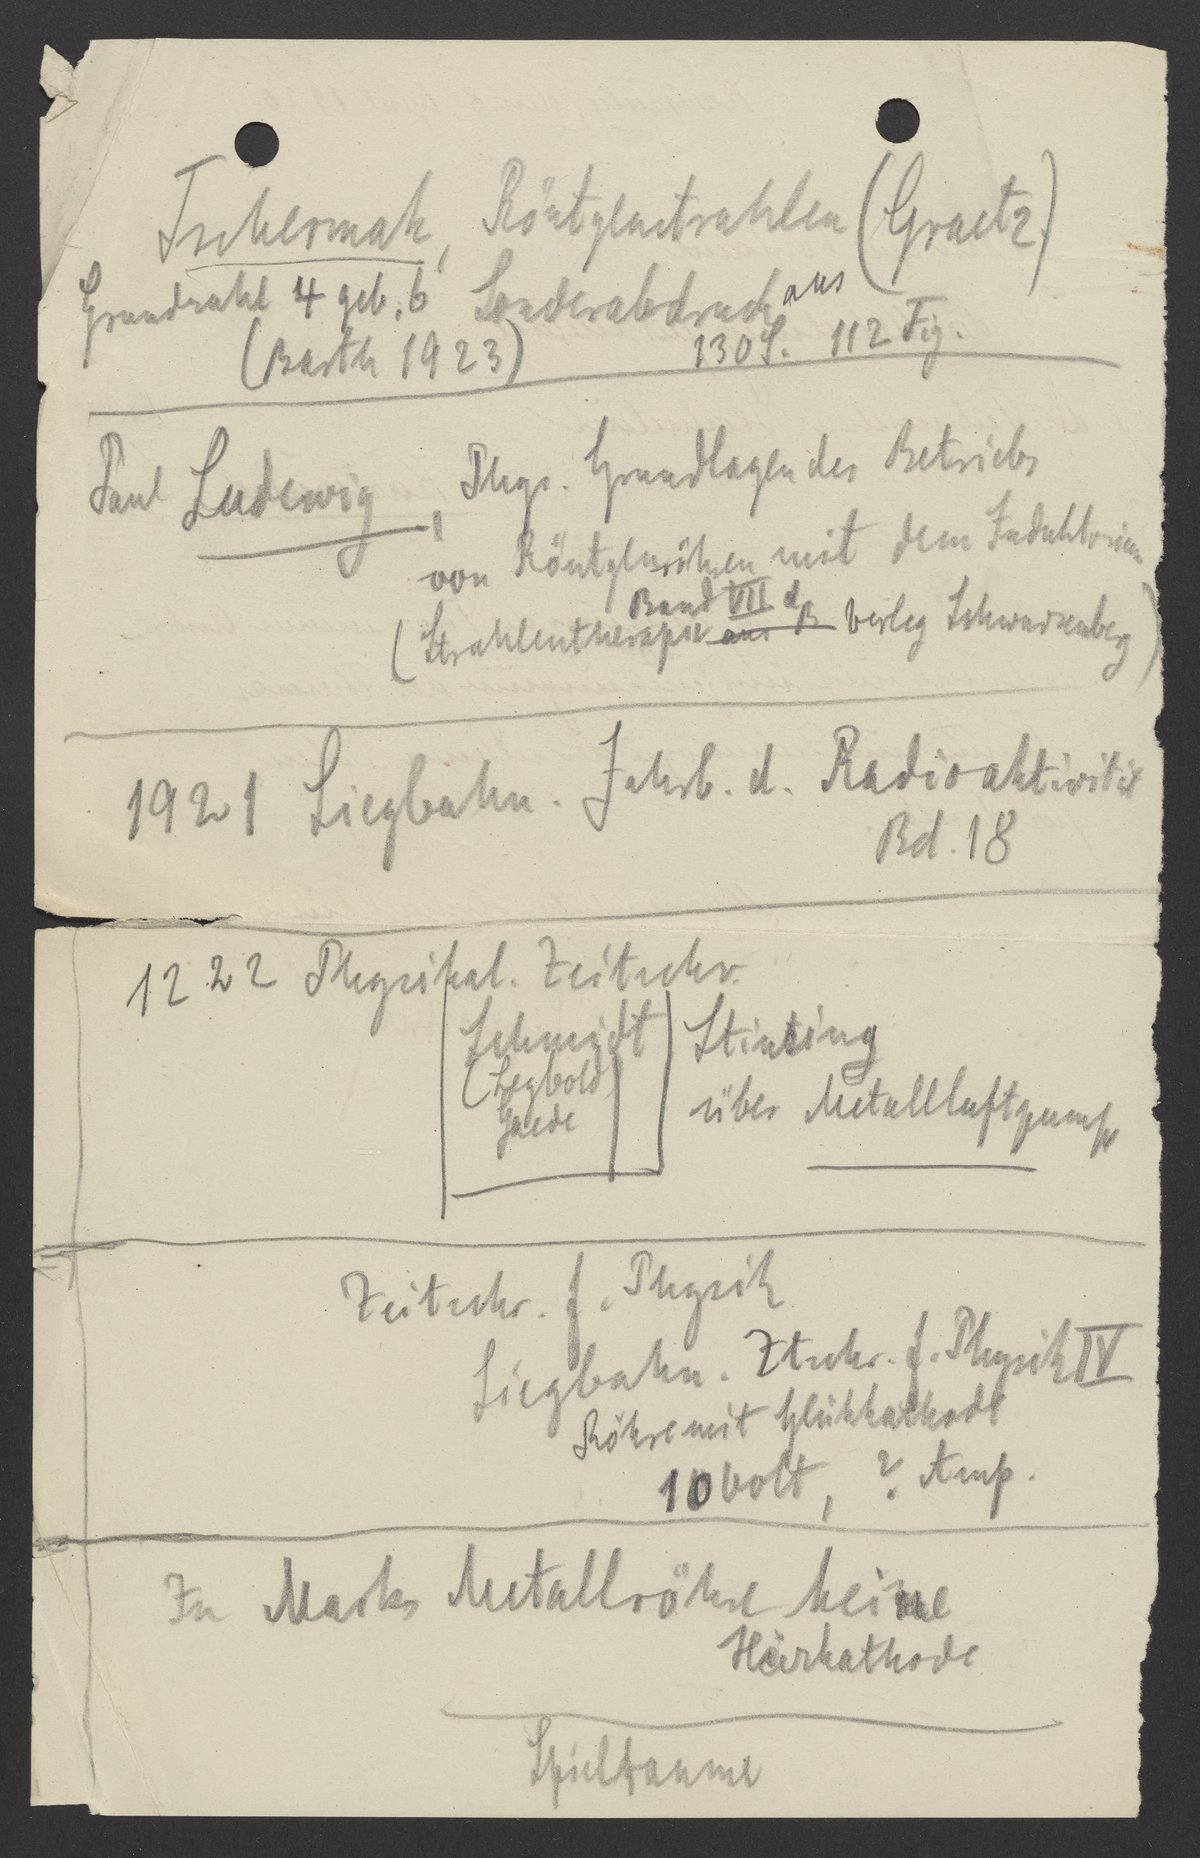 Tschermak, Röntgenstrahlen (Graetz)
Grundzahl 4 geb. 6 Sonderabdruck aus
(Barth 1923) 130 S. 112 Fig.
Paul Ludewig, Phys. Grundlagen des Betriebs
von Röntgenröhren mit dem Induktorium
Band VII d
(Strahlentherapie aus B Verlag Schwarzenberg)
1921 Siegbahn. Jahrb. d. Radioaktivität
Bd. 18
1222 Physikal. Zeitschr.
Schmidt Stintzing
(Leybold) über Metallluftpumpe
Gaede
Zeitschr. f. Physik
Siegbahn. Ztschr. f. Physik IV
Röhre mit Glühkathode
10 Volt, ? Amp.
In Marks Metallröhre keine
kathode
Spielraume